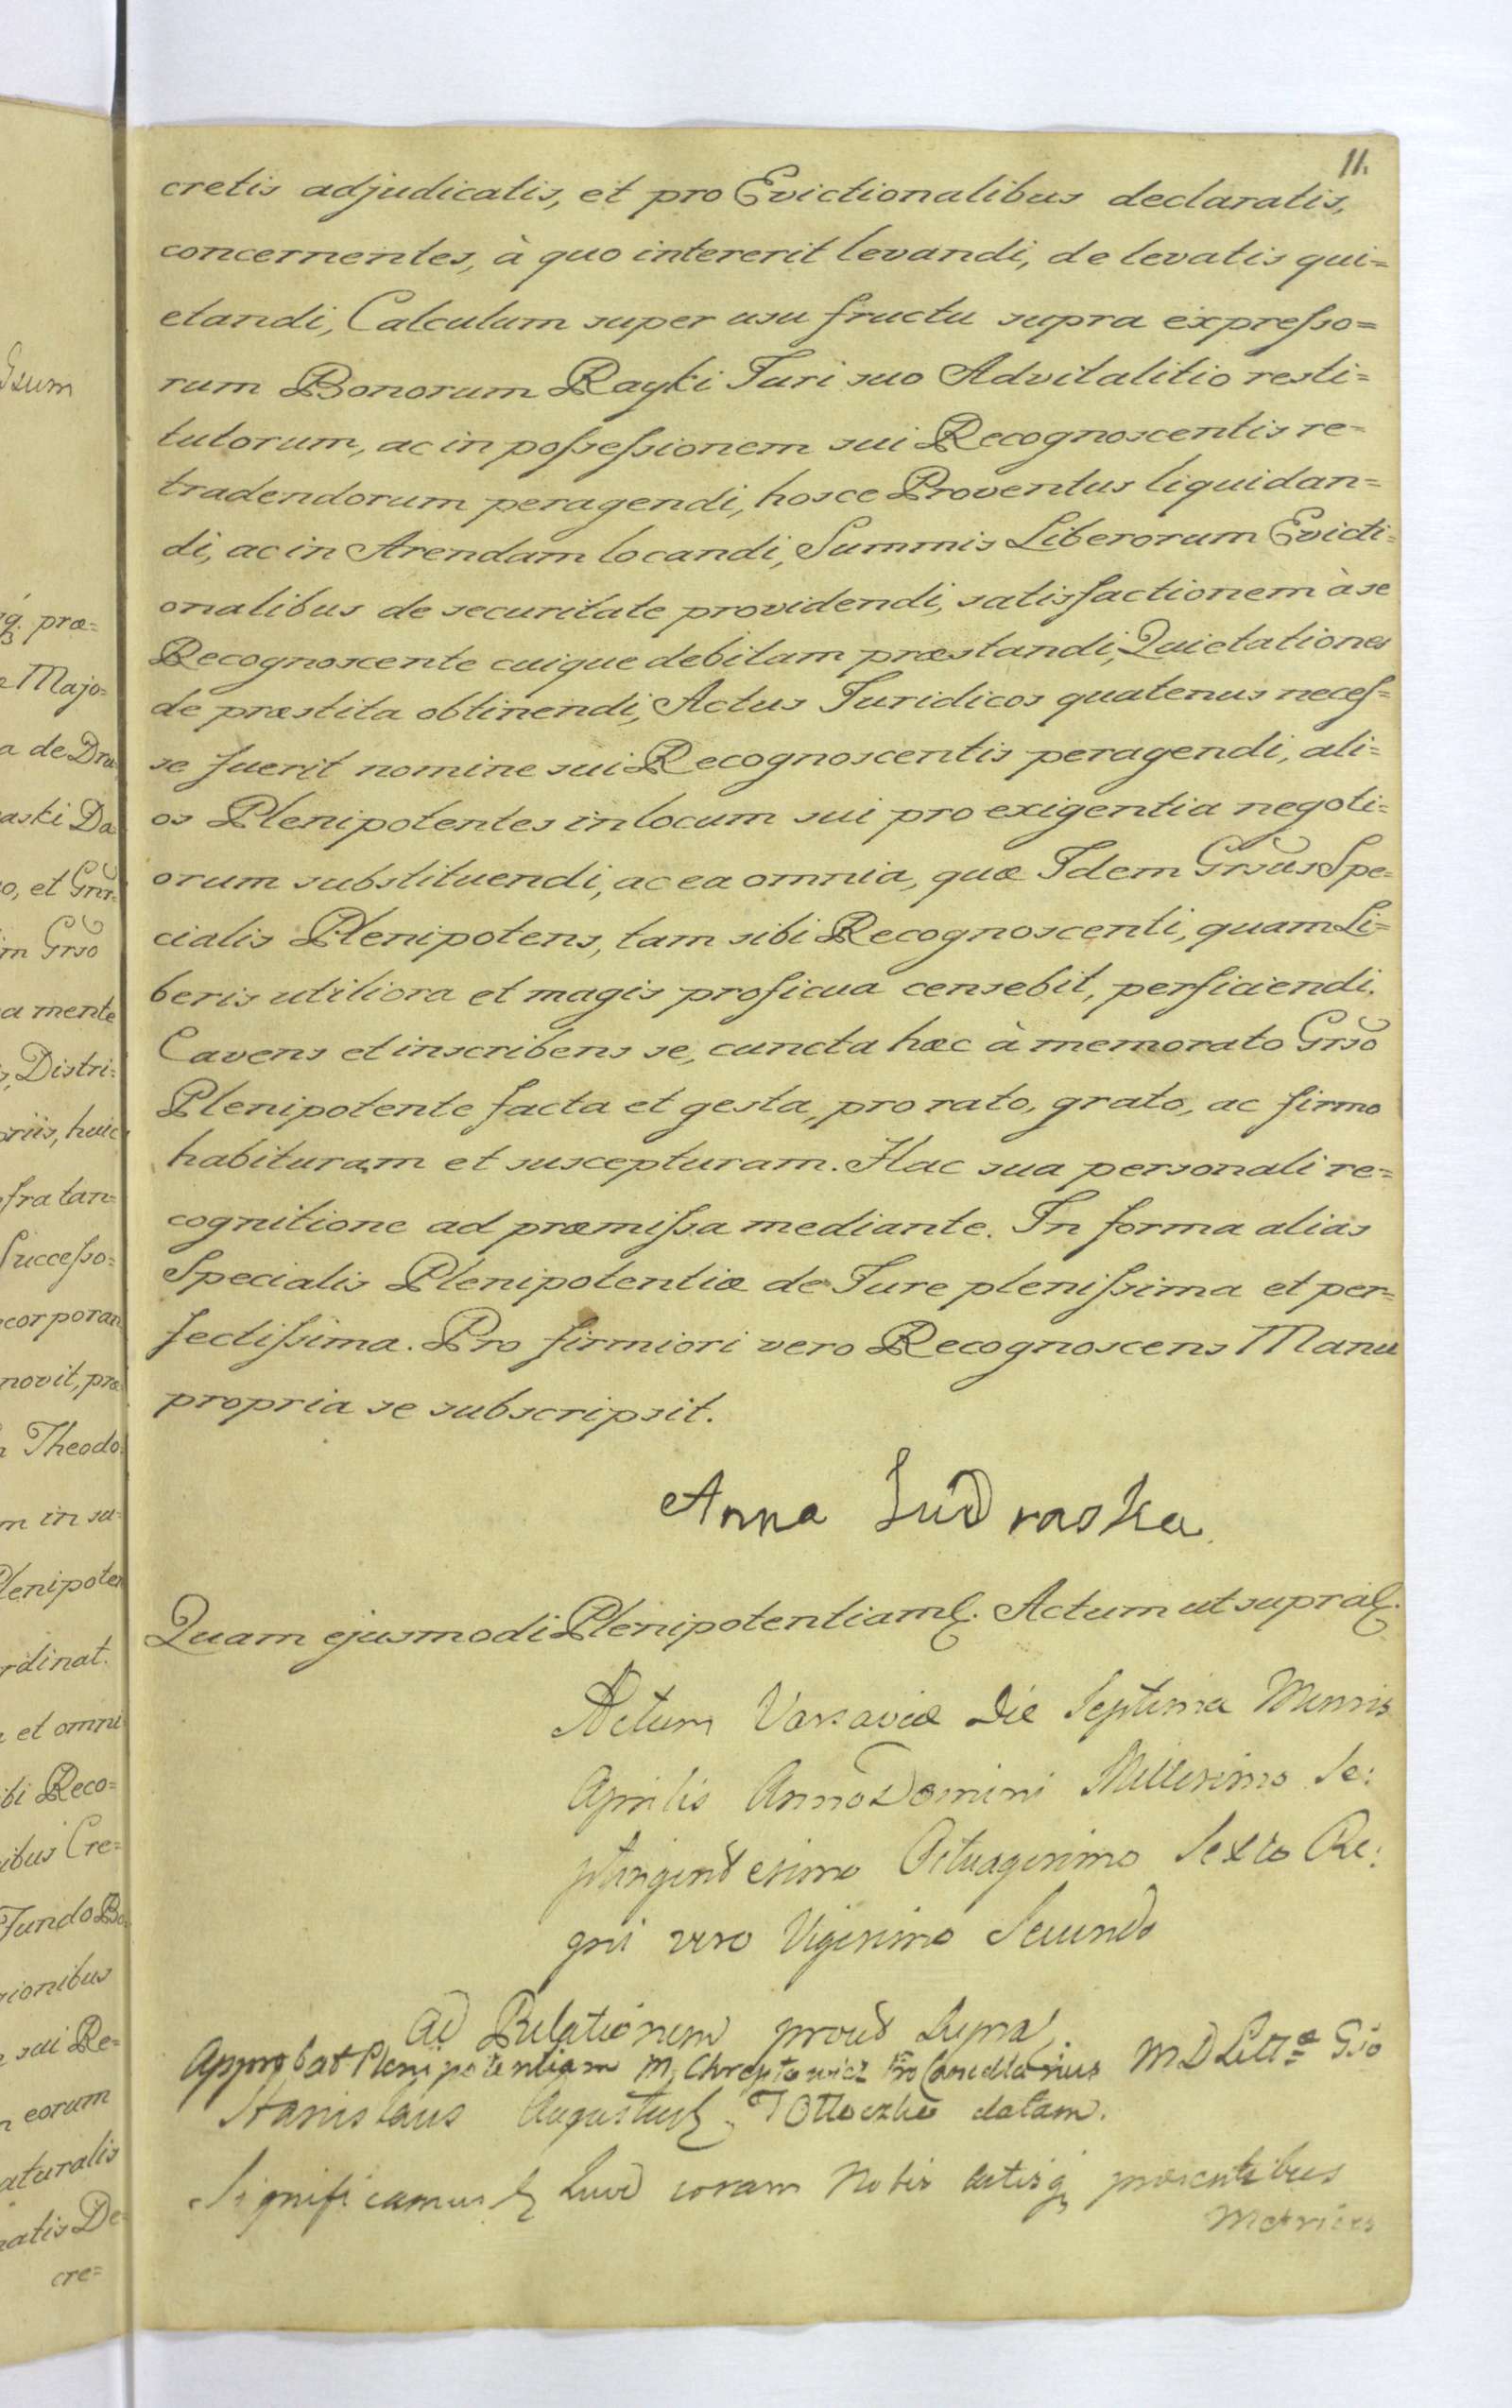 11.
cretis adjudicatis, et pro Evictionalibus declaratis,
concernentes, à quo intererit levandi, de levatis qui=
etandi, Calculum super usu fructu supra expresso=
rum Bonorum Rayki Juri suo Advitalitio resti=
tutorum, ac in possessionem sui Recognoscentis re=
tradendorum peragendi, hosce Proventus liquidan=
di, ac in Arendam locandi, Summis Liberorum Evicti=
onalibus de securitate providendi, satisfactionem à se
Recognoscente cuique debitam præstandi, Quietationes
de præstita obtinendi, Actus Juridicos quatenus neces=
se fuerit nomine sui Recognoscentis peragendi, ali=
os Plenipotentes in locum sui pro exigentia negoti=
orum substituendi, ac ea omnia, quæ Idem Grsus Spe=
cialis Plenipotens, tam sibi Recognoscenti, quam Li=
beris utiliora et magis proficua censebit, perficiendi.
Cavens et inscribens se, cuncta hæc à memorato Grso
Plenipotente facta et gesta, pro rato, grato, ac firmo
habituram et suscepturam. Hac sua personali re=
cognitione ad præmissa mediante. In forma alias
Specialis Plenipotentiæ de Jure plenissima et per=
fectissima. Pro firmiori vero Recognoscens Manu
propria se subscripsit.
Anna Sudraska
Quam ejusmodi Plenipotentiam. Actum ut supra.
Actum Varsaviæ Die Septima Mensis
Aprilis Anno Domini Millesimo Se:
ptingendesimo Octuagesimo Sexto Re:
gni vero Vigesimo Secundo
Ad Relationem proud Supra.
Approbat Plenipotentiam M. Chreptowicz Pro Cancellarius M D Litt Gso
Stanislaus Augustus Ottoczko datam.
Significamus Quod coram Nobis Actisq præsentibus